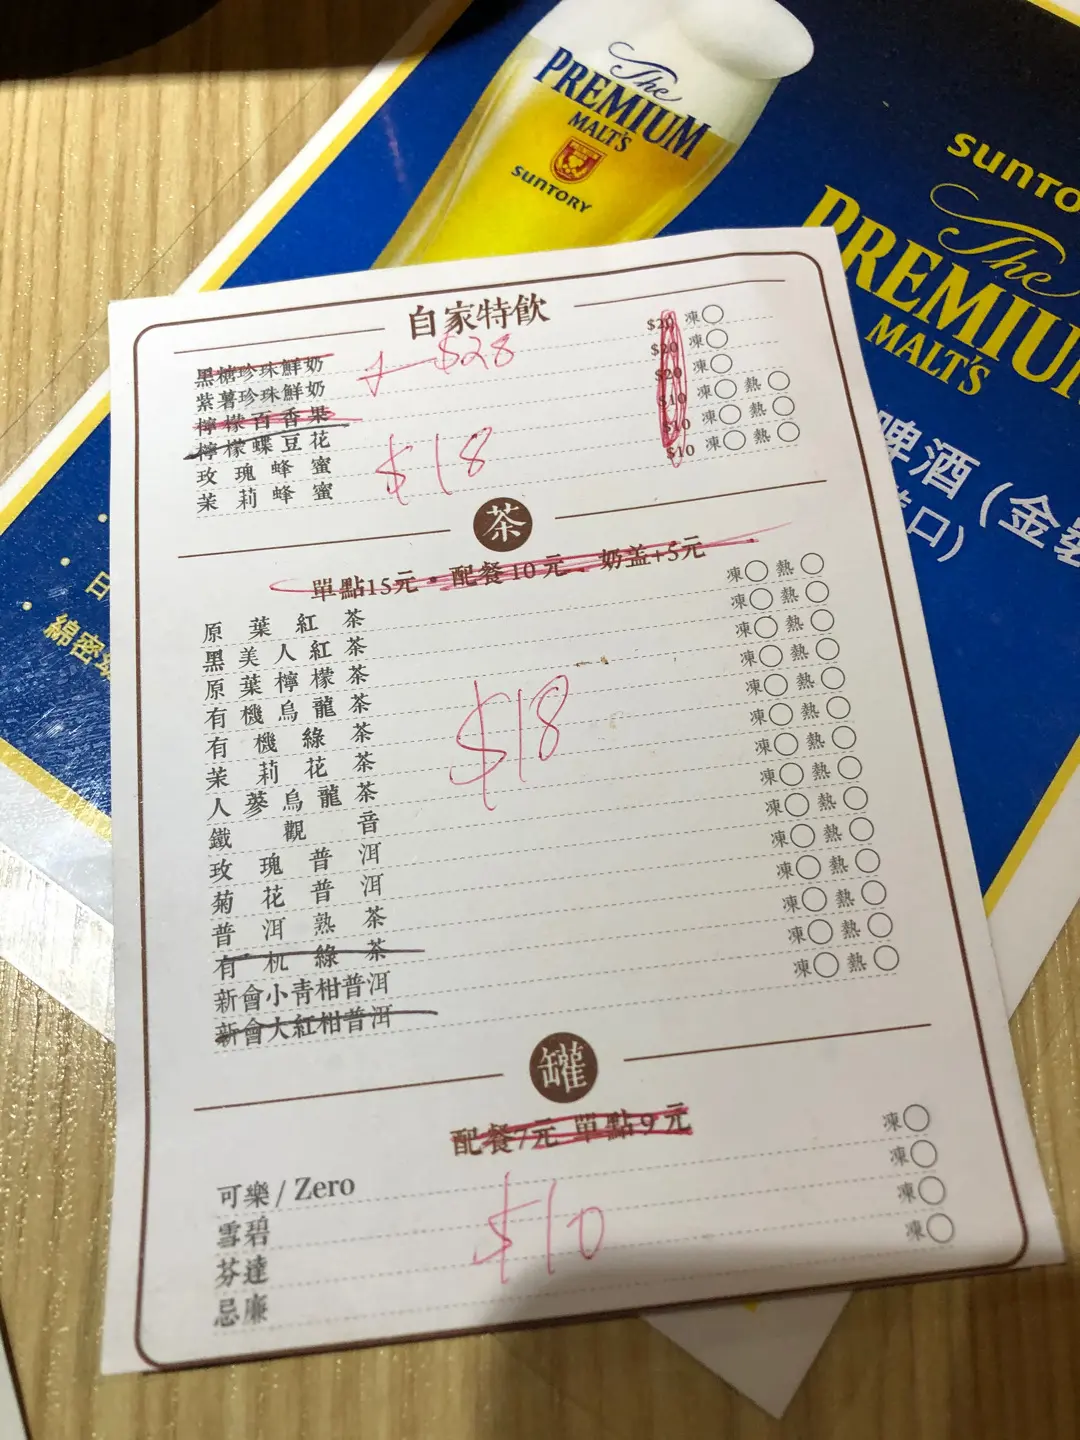 The
PREMIUM
MALT'S
SUNTORY
SUNTO
The
PREMIU
MALT'S
啤酒 (金
口)
日
綿密
自家特飲
黑糖珍珠鮮奶 $20 凍
$28
紫薯珍珠鮮奶 $20 凍
檸檬百香果 $20 凍
檸檬蝶豆花 $10 凍 熱
玫瑰蜂蜜 $10 凍 熱
$18
茉莉蜂蜜 $10 凍 熱
茶
單點15元・配餐10元、奶盖+5元
原葉紅茶 凍 熱
黑美人紅茶 凍 熱
原葉檸檬茶 凍 熱
有機烏龍茶 凍 熱
有機綠茶 凍 熱
$18
茉莉花茶 凍 熱
人蔘烏龍茶 凍 熱
鐵觀音 凍 熱
玫瑰普洱 凍 熱
菊花普洱 凍 熱
普洱熟茶 凍 熱
有机綠茶 凍 熱
新會小青柑普洱 凍 熱
新會大紅柑普洱 凍 熱
罐
配餐7元 單點9元
可樂 / Zero 凍
雪碧 凍
$10
芬達 凍
忌廉 凍